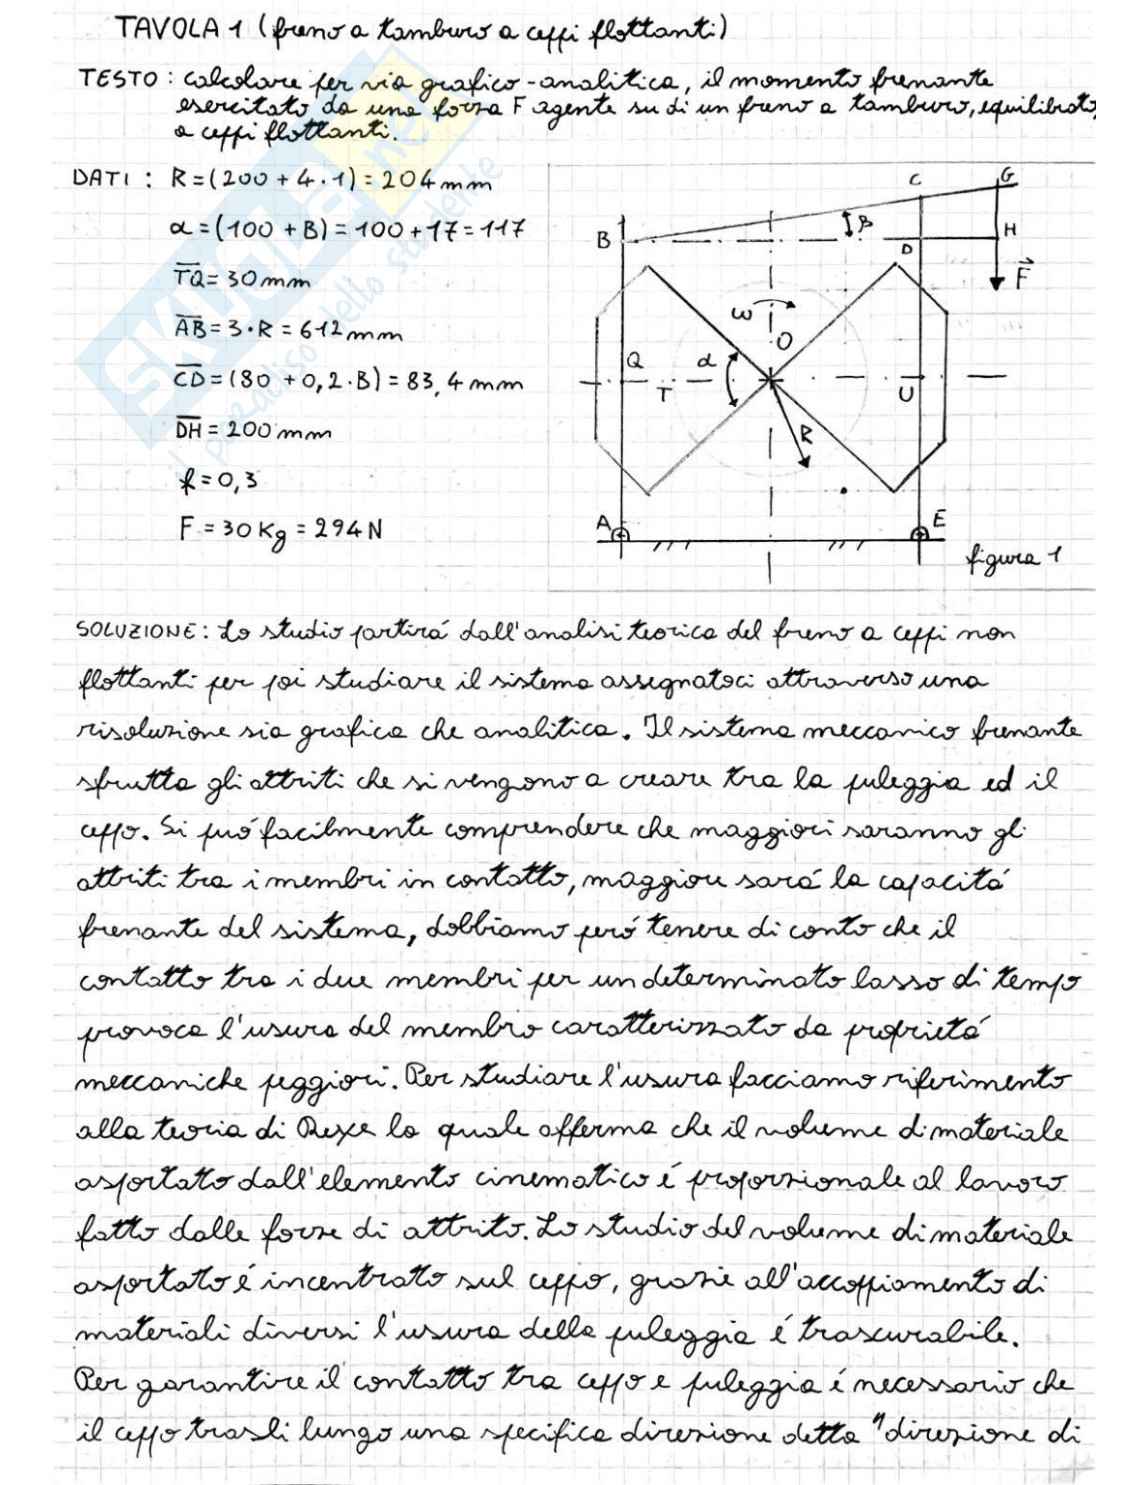 TAVOLA 1 (freno a tamburo a ceppi flottanti)
TESTO: calcolare per via grafico-analitica, il momento frenante
esercitato da una forza F agente su di un freno a tamburo, equilibrato,
a ceppi flottanti.
DATI: R=(200+4·1)=204mm
α=(100+B)=100+17=117
TQ=30mm
AB=3·R=612mm
CD=(80+0,2·B)=83,4mm
DH=200mm
f=0,3
F=30Kg=294N
C
G
B
β
D
H
F
ω
O
Q
α
T
U
R
A
E
figura 1
SOLUZIONE: Lo studio partirá dall'analisi teorica del freno a ceppi non
flottanti per poi studiare il sistema assegnatoci attraverso una
risoluzione sia grafica che analitica. Il sistema meccanico frenante
sfrutta gli attriti che si vengono a creare tra la puleggia ed il
ceppo. Si puó facilmente comprendere che maggiori saranno gli
attriti tra i membri in contatto, maggiore sará la capacitá
frenante del sistema, dobbiamo peró tenere di conto che il
contatto tra i due membri per un determinato lasso di tempo
provoca l'usura del membro caratterizzato da proprietá
meccaniche peggiori. Per studiare l'usura facciamo riferimento
alla teoria di Reye la quale afferma che il volume di materiale
asportato dall'elemento cinematico é proporzionale al lavoro
fatto dalle forze di attrito. Lo studio del volume di materiale
asportato é incentrato sul ceppo, grazie all'accoppiamento di
materiali diversi l'usura della puleggia é trascurabile.
Per garantire il contatto tra ceppo e puleggia é necessario che
il ceppo trasli lungo una specifica direzione detta "direzione di
SKUOLA.net
il paradiso dello studente